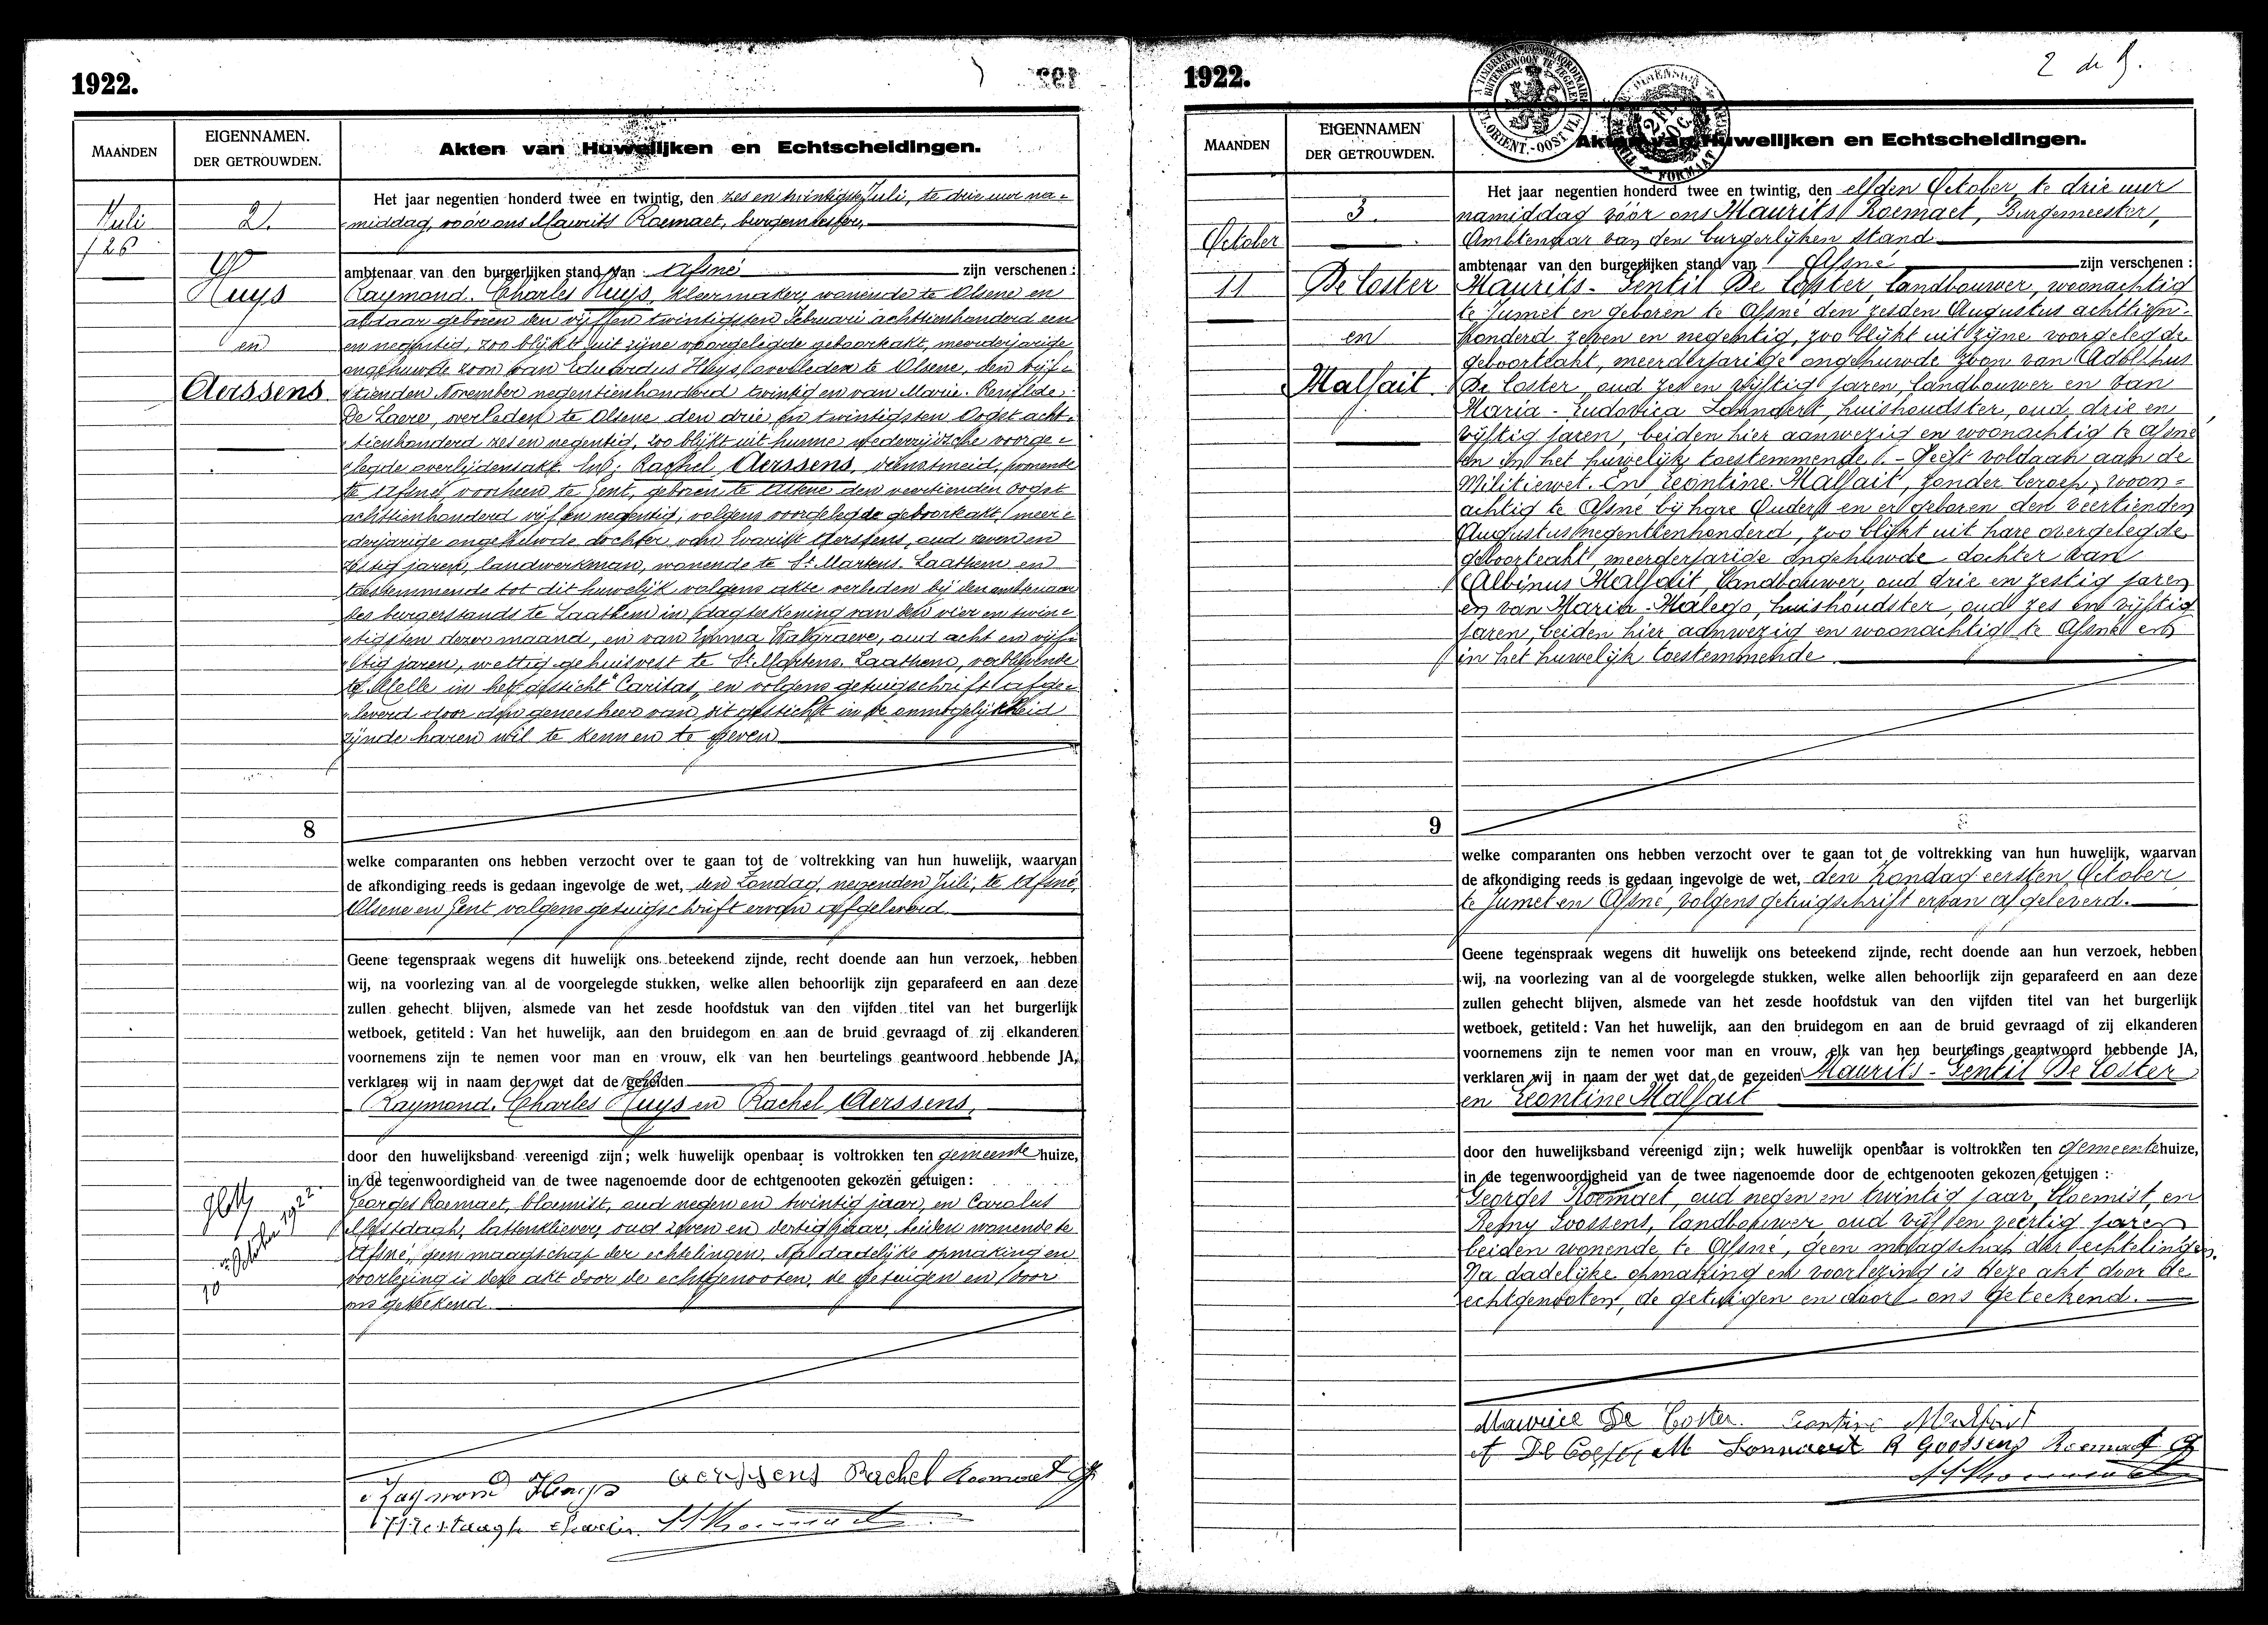 1922.
MAANDEN
EIGENNAMEN.
DER GETROUWDEN.
Akten van Huwelijken en Echtscheidingen.
Juli
26
2.
Huys
en
Aerssens
Het jaar negentien honderd twee en twintig, den zes en twintigsten Juli, te drie uur na-
middag, vóór ons Maurits Roemaet, burgemeester,
ambtenaar van den burgerlijken stand van Afsné zijn verschenen:
Raymond. Charles Huys, kleermaker, wonende te Olsene en
aldaar geboren den vijf en twintigsten Februari achttienhonderd een
en negentig, zoo blijkt uit zijne voorgelegde geboorteakt, meerderjarige
ongehuwde zoon van Eduardus Huys, overleden te Olsene, den vijf-
tienden November negentienhonderd twintig en van Marie. Renilde.
De Laere, verleden te Olsene den drie en twintigsten Oogst acht-
tienhonderd zes en negentig, zoo blijkt uit hunne wederzijdsche voorge-
legde overlijdensakt. En: Rachel Aerssens, dienstmeid, wonende
te Afsné, voorheen te Gent, geboren te Astene den veertienden Oogst
achttienhonderd vijf en negentig, volgens voorgelegde geboorteakt, meer-
derjarige ongehuwde dochter van Evarist Aerssens, oud zeven en
zestig jaren, landwerkman, wonende te St. Martens. Laathem en
toestemmende tot dit huwelijk volgens akte verleden bij den ambtenaar
des burgerstands te Laathem in dagteekening van den vier en twin-
tigsten dezer maand, en van Emma Walgraeve, oud acht en vijf-
tig jaren, wettig gehuisvest te St. Martens. Laathem, verblijvende
te Melle in het gesticht "Caritas" en volgens getuigschrift afge-
leverd door den geneesheer van dit gesticht in de onmogelijkheid
zijnde haren wil te kennen te geven
8
welke comparanten ons hebben verzocht over te gaan tot de voltrekking van hun huwelijk, waarvan
de afkondiging reeds is gedaan ingevolge de wet, den Zondag, negenden Juli, te Afsné,
Olsene en Gent volgens getuigschrift ervan afgeleverd.
Geene tegenspraak wegens dit huwelijk ons beteekend zijnde, recht doende aan hun verzoek, hebben
wij, na voorlezing van al de voorgelegde stukken, welke allen behoorlijk zijn geparafeerd en aan deze
zullen gehecht blijven, alsmede van het zesde hoofdstuk van den vijfden titel van het burgerlijk
wetboek, getiteld: Van het huwelijk, aan den bruidegom en aan de bruid gevraagd of zij elkanderen
voornemens zijn te nemen voor man en vrouw, elk van hen beurtelings geantwoord hebbende JA,
verklaren wij in naam der wet dat de gezeiden
Raymond. Charles Huys en Rachel Aerssens,
door den huwelijksband vereenigd zijn; welk huwelijk openbaar is voltrokken ten gemeentehuize,
in de tegenwoordigheid van de twee nagenoemde door de echtgenooten gekozen getuigen:
Georges Roemaet, bloemist, oud negen en twintig jaar, en Carolus
Mestdagh, lattenkliever, oud zeven en dertig jaar, beiden wonende te
Afsné, geen maagschap der echtelingen. Na dadelijke opmaking en
voorlezing is deze akt door de echtgenooten, de getuigen en door
ons geteekend.
10 October 1922.
Raymond Huys Aerssens Rachel Roemaet G
Mestdagh Charles M Roemaet
1922.
2 de B.
MAANDEN
EIGENNAMEN
DER GETROUWDEN.
Akten van Huwelijken en Echtscheidingen.
October
11
3.
De Coster
en
Malfait.
Het jaar negentien honderd twee en twintig, den elfden October te drie uur
namiddag vóór ons Maurits Roemaet, Burgemeester,
Ambtenaar van den burgerlijken stand
ambtenaar van den burgerlijken stand van Afsné zijn verschenen:
Maurits - Gentil De Coster, landbouwer, woonachtig
te Jumet en geboren te Afsné den zesden Augustus achttien-
honderd zeven en negentig, zoo blijkt uit zijne voorgelegde
geboorteakt, meerderjarige ongehuwde zoon van Adolphus
De Coster, oud zes en vijftig jaren, landbouwer en van
Maria - Ludovica Lannaert, huishoudster, oud drie en
vijftig jaren, beiden hier aanwezig en woonachtig te Afsné
en in het huwelijk toestemmende. - Heeft voldaan aan de
Militiewet. En Leontine Malfait, zonder beroep, woon-
achtig te Afsné bij hare Ouders en er geboren den veertienden
Augustus negentienhonderd, zoo blijkt uit hare overgelegde
geboorteakt, meerderjarige ongehuwde dochter van
Albinus Malfait, Landbouwer, oud drie en zestig jaren
en van Maria - Malego, huishoudster, oud zes en vijftig
jaren, beiden hier aanwezig en woonachtig te Afsné en
in het huwelijk toestemmende
9
welke comparanten ons hebben verzocht over te gaan tot de voltrekking van hun huwelijk, waarvan
de afkondiging reeds is gedaan ingevolge de wet, den Zondag eersten October
te Jumet en Afsné, volgens getuigschrift ervan afgeleverd.
Geene tegenspraak wegens dit huwelijk ons beteekend zijnde, recht doende aan hun verzoek, hebben
wij, na voorlezing van al de voorgelegde stukken, welke allen behoorlijk zijn geparafeerd en aan deze
zullen gehecht blijven, alsmede van het zesde hoofdstuk van den vijfden titel van het burgerlijk
wetboek, getiteld: Van het huwelijk, aan den bruidegom en aan de bruid gevraagd of zij elkanderen
voornemens zijn te nemen voor man en vrouw, elk van hen beurtelings geantwoord hebbende JA,
verklaren wij in naam der wet dat de gezeiden Maurits - Gentil De Coster
en Leontine Malfait
door den huwelijksband vereenigd zijn; welk huwelijk openbaar is voltrokken ten gemeentehuize,
in de tegenwoordigheid van de twee nagenoemde door de echtgenooten gekozen getuigen:
Georges Roemaet, oud negen en twintig jaar, bloemist, en
Remy Goossens, landbouwer, oud vijf en veertig jaren
beiden wonende, te Afsné, geen maagschap der echtelingen.
Na dadelijke opmaking en voorlezing is deze akt door de
echtgenooten, de getuigen en door ons geteekend.
Maurice De Coster. Leontine Malfait
A De Coster M Lannaert R Goossens Roemaet G
M Roemaet